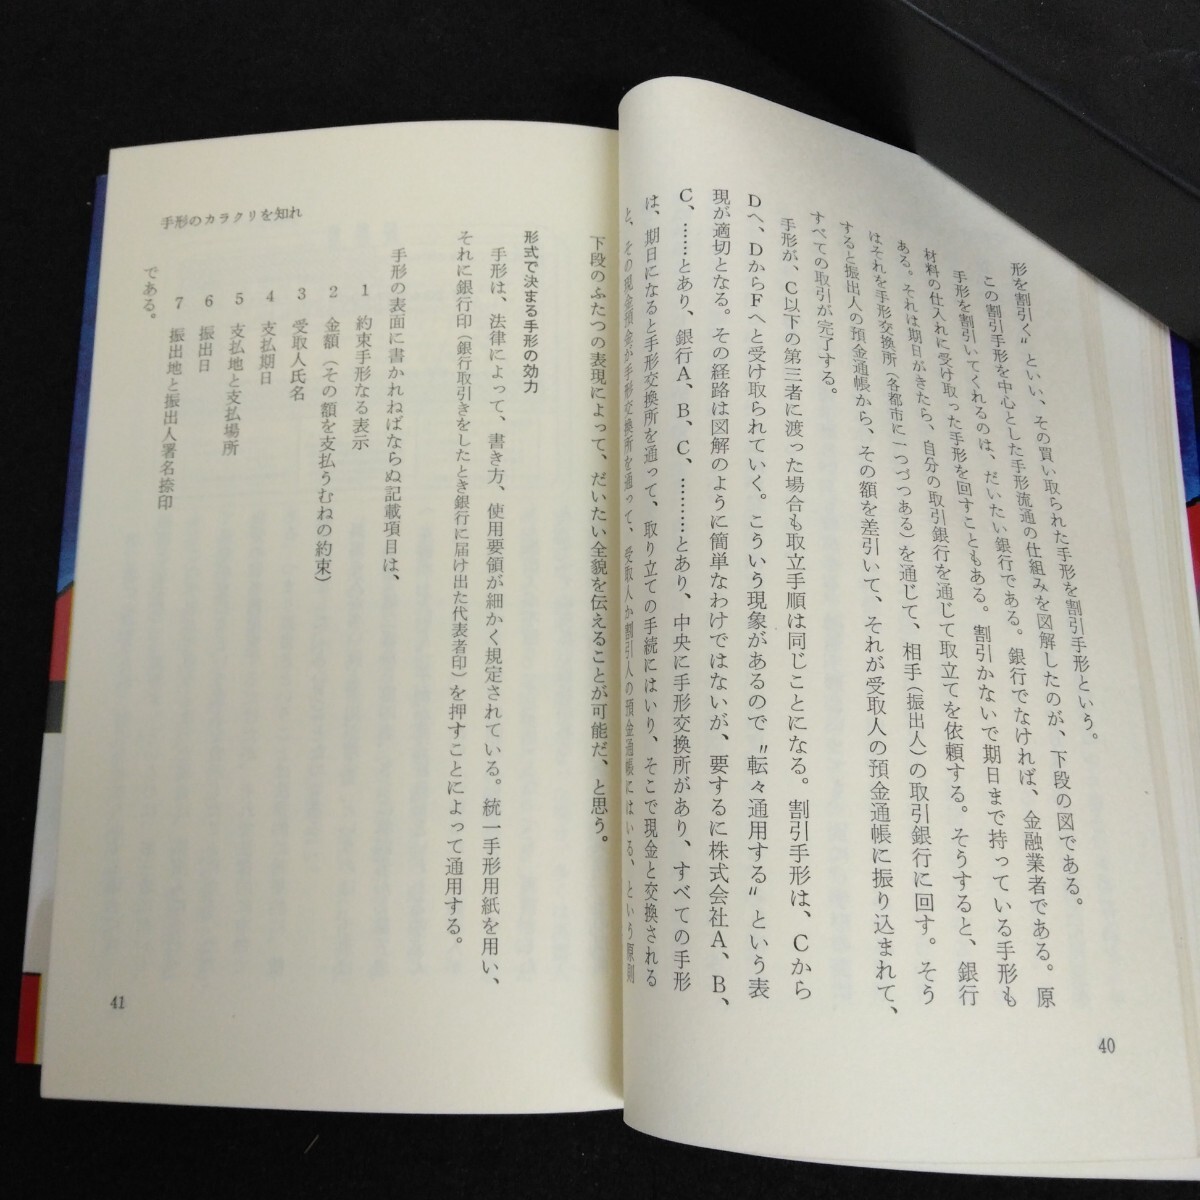 形を割引く〟といい、その買い取られた手形を割引手形という。
この割引手形を中心とした手形流通の仕組みを図解したのが、下段の図である。
手形を割引いてくれるのは、だいたい銀行である。銀行でなければ、金融業者である。原
材料の仕入れに受け取った手形を回すこともある。割引かないで期日まで持っている手形も
ある。それは期日がきたら、自分の取引銀行を通じて取立てを依頼する。そうすると、銀行
はそれを手形交換所（各都市に一つづつある）を通じて、相手（振出人）の取引銀行に回す。そう
すると振出人の預金通帳から、その額を差引いて、それが受取人の預金通帳に振り込まれて、
すべての取引が完了する。
手形が、C以下の第三者に渡った場合も取立手順は同じことになる。割引手形は、Cから
Dへ、DからFへと受け取られていく。こういう現象があるので〝転々通用する〟という表
現が適切となる。その経路は図解のように簡単なわけではないが、要するに株式会社A、B、
C、………とあり、銀行A、B、C、………とあり、中央に手形交換所があり、すべての手形
は、期日になると手形交換所を通って、取り立ての手続にはいり、そこで現金と交換される
と、その現金預金が手形交換所を通って、受取人か割引人の預金通帳にはいる、という原則
40
下段のふたつの表現によって、だいたい全貌を伝えることが可能だ、と思う。
形式で決まる手形の効力
手形は、法律によって、書き方、使用要領が細かく規定されている。統一手形用紙を用い、
それに銀行印（銀行取引きをしたとき銀行に届け出た代表者印）を押すことによって通用する。
手形の表面に書かれねばならぬ記載項目は、
1　約束手形なる表示
2　金額（その額を支払うむねの約束）
3　受取人氏名
4　支払期日
5　支払地と支払場所
6　振出日
7　振出地と振出人署名捺印
である。
手形のカラクリを知れ
41